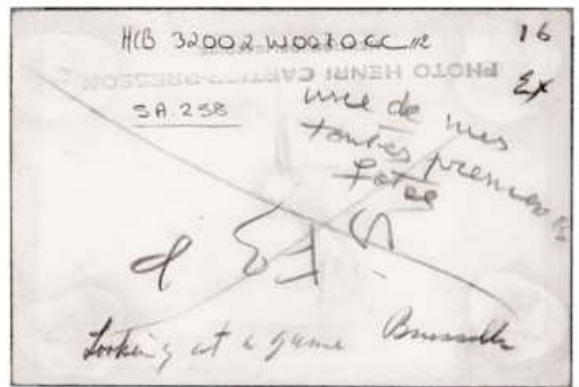 HCB 32002 W00
16
PHOTO HENRI CARTIER-BRESSON
Ex
SA.258
une de mes
toutes premières
Looking at a game Brussels